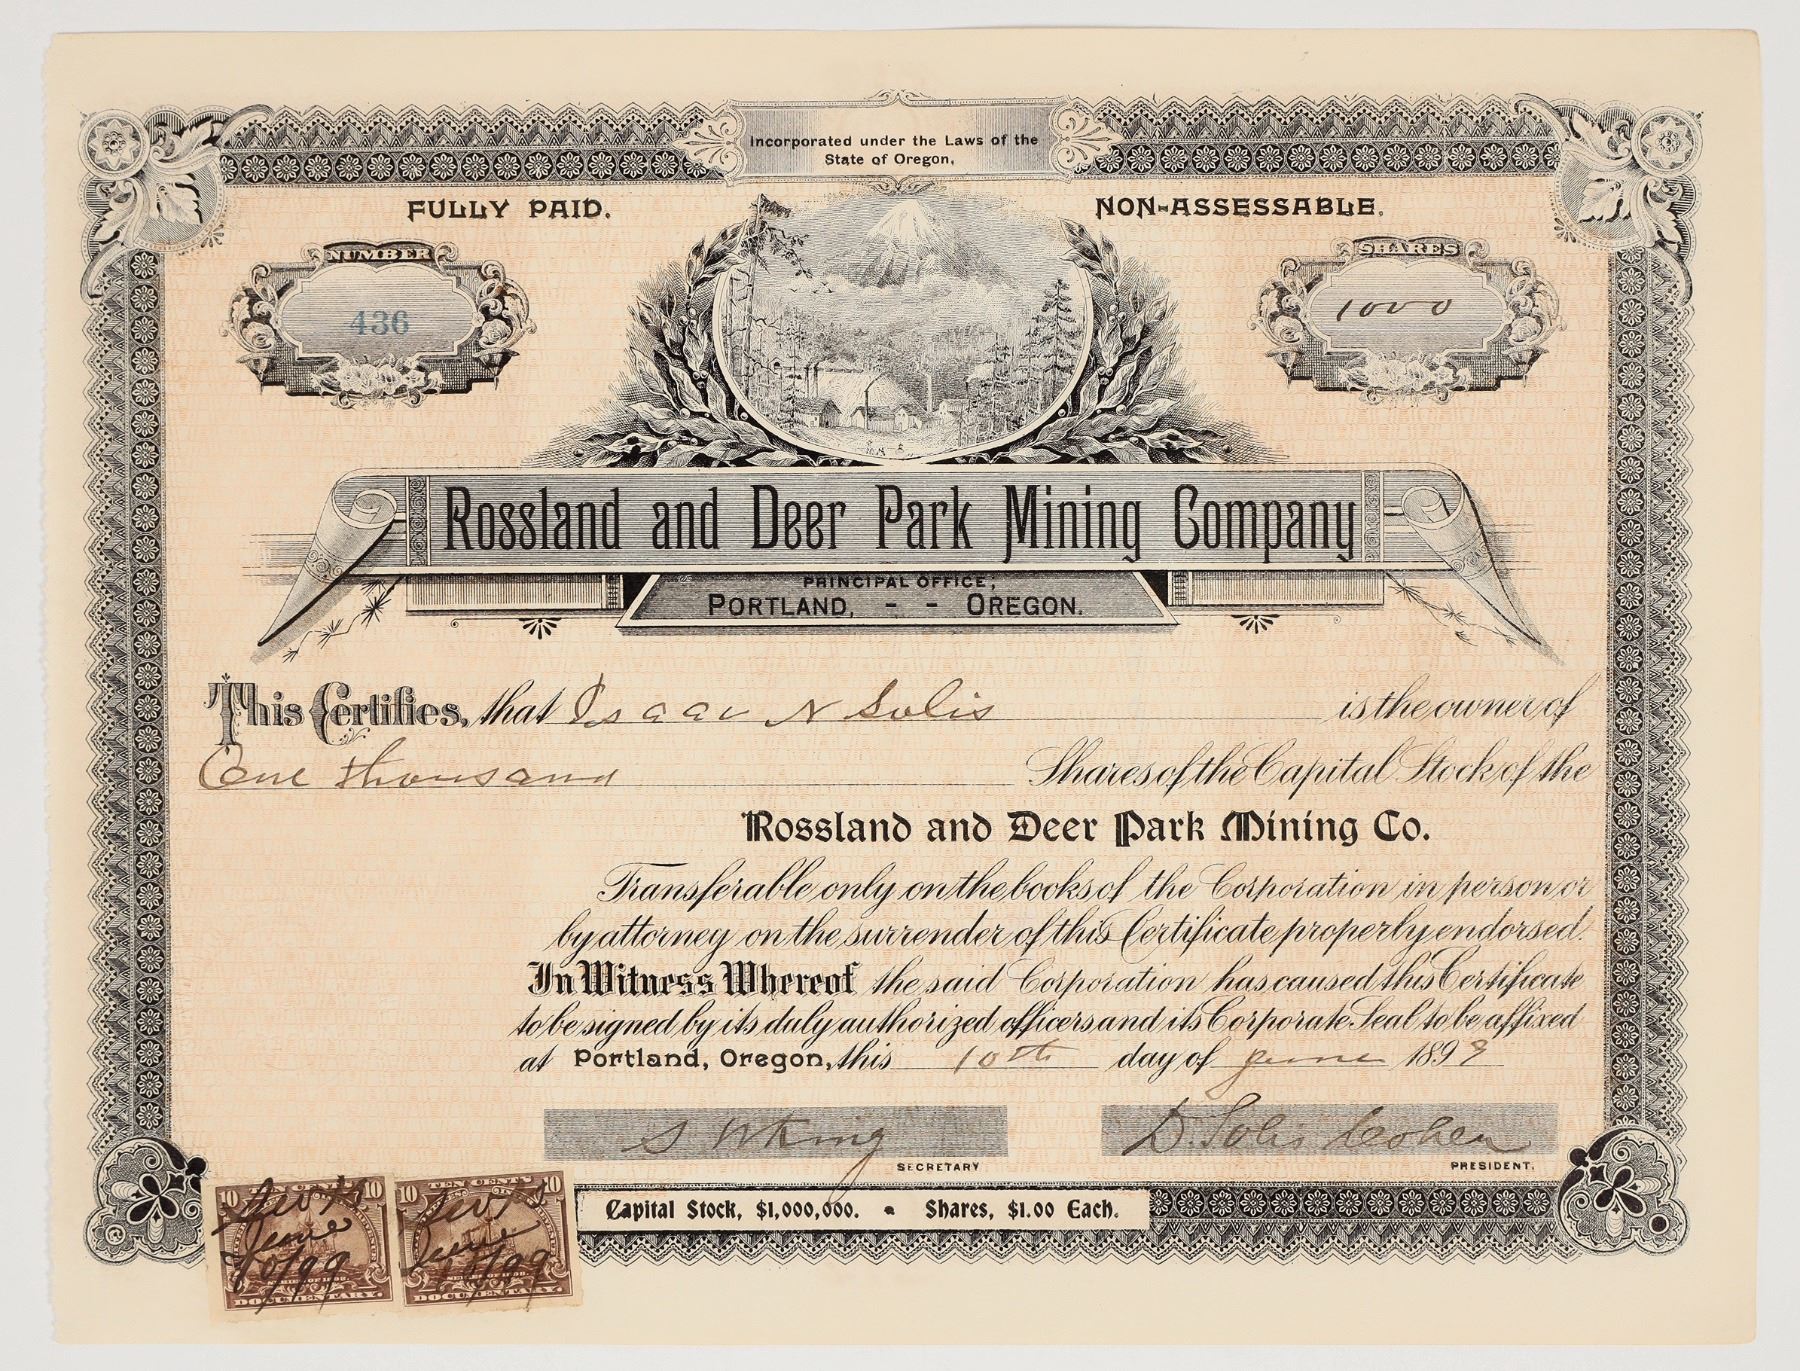 Incorporated under the Laws of the
State of Oregon,
FULLY PAID.
NON-ASSESSABLE.
NUMBER
436
SHARES
1000
Rossland and Deer Park Mining Company
PRINCIPAL OFFICE,
PORTLAND, - - OREGON.
This Certifies, that Isaac N Solis is the owner of
One thousand Shares of the Capital Stock of the
Rossland and Deer Park Mining Co.
Transferable only on the books of the Corporation in person or
by attorney on the surrender of this Certificate properly endorsed.
In Witness Whereof the said Corporation has caused this Certificate
to be signed by its duly authorized officers and its Corporate Seal to be affixed
at Portland, Oregon, this 10th day of June 1899
S W King
SECRETARY
D. Solis Cohen
PRESIDENT.
Capital Stock, $1,000,000. Shares, $1.00 Each.
10 TEN CENTS 10
June
10/99
DOCUMENTARY.
10 TEN CENTS 10
June
10/99
DOCUMENTARY.